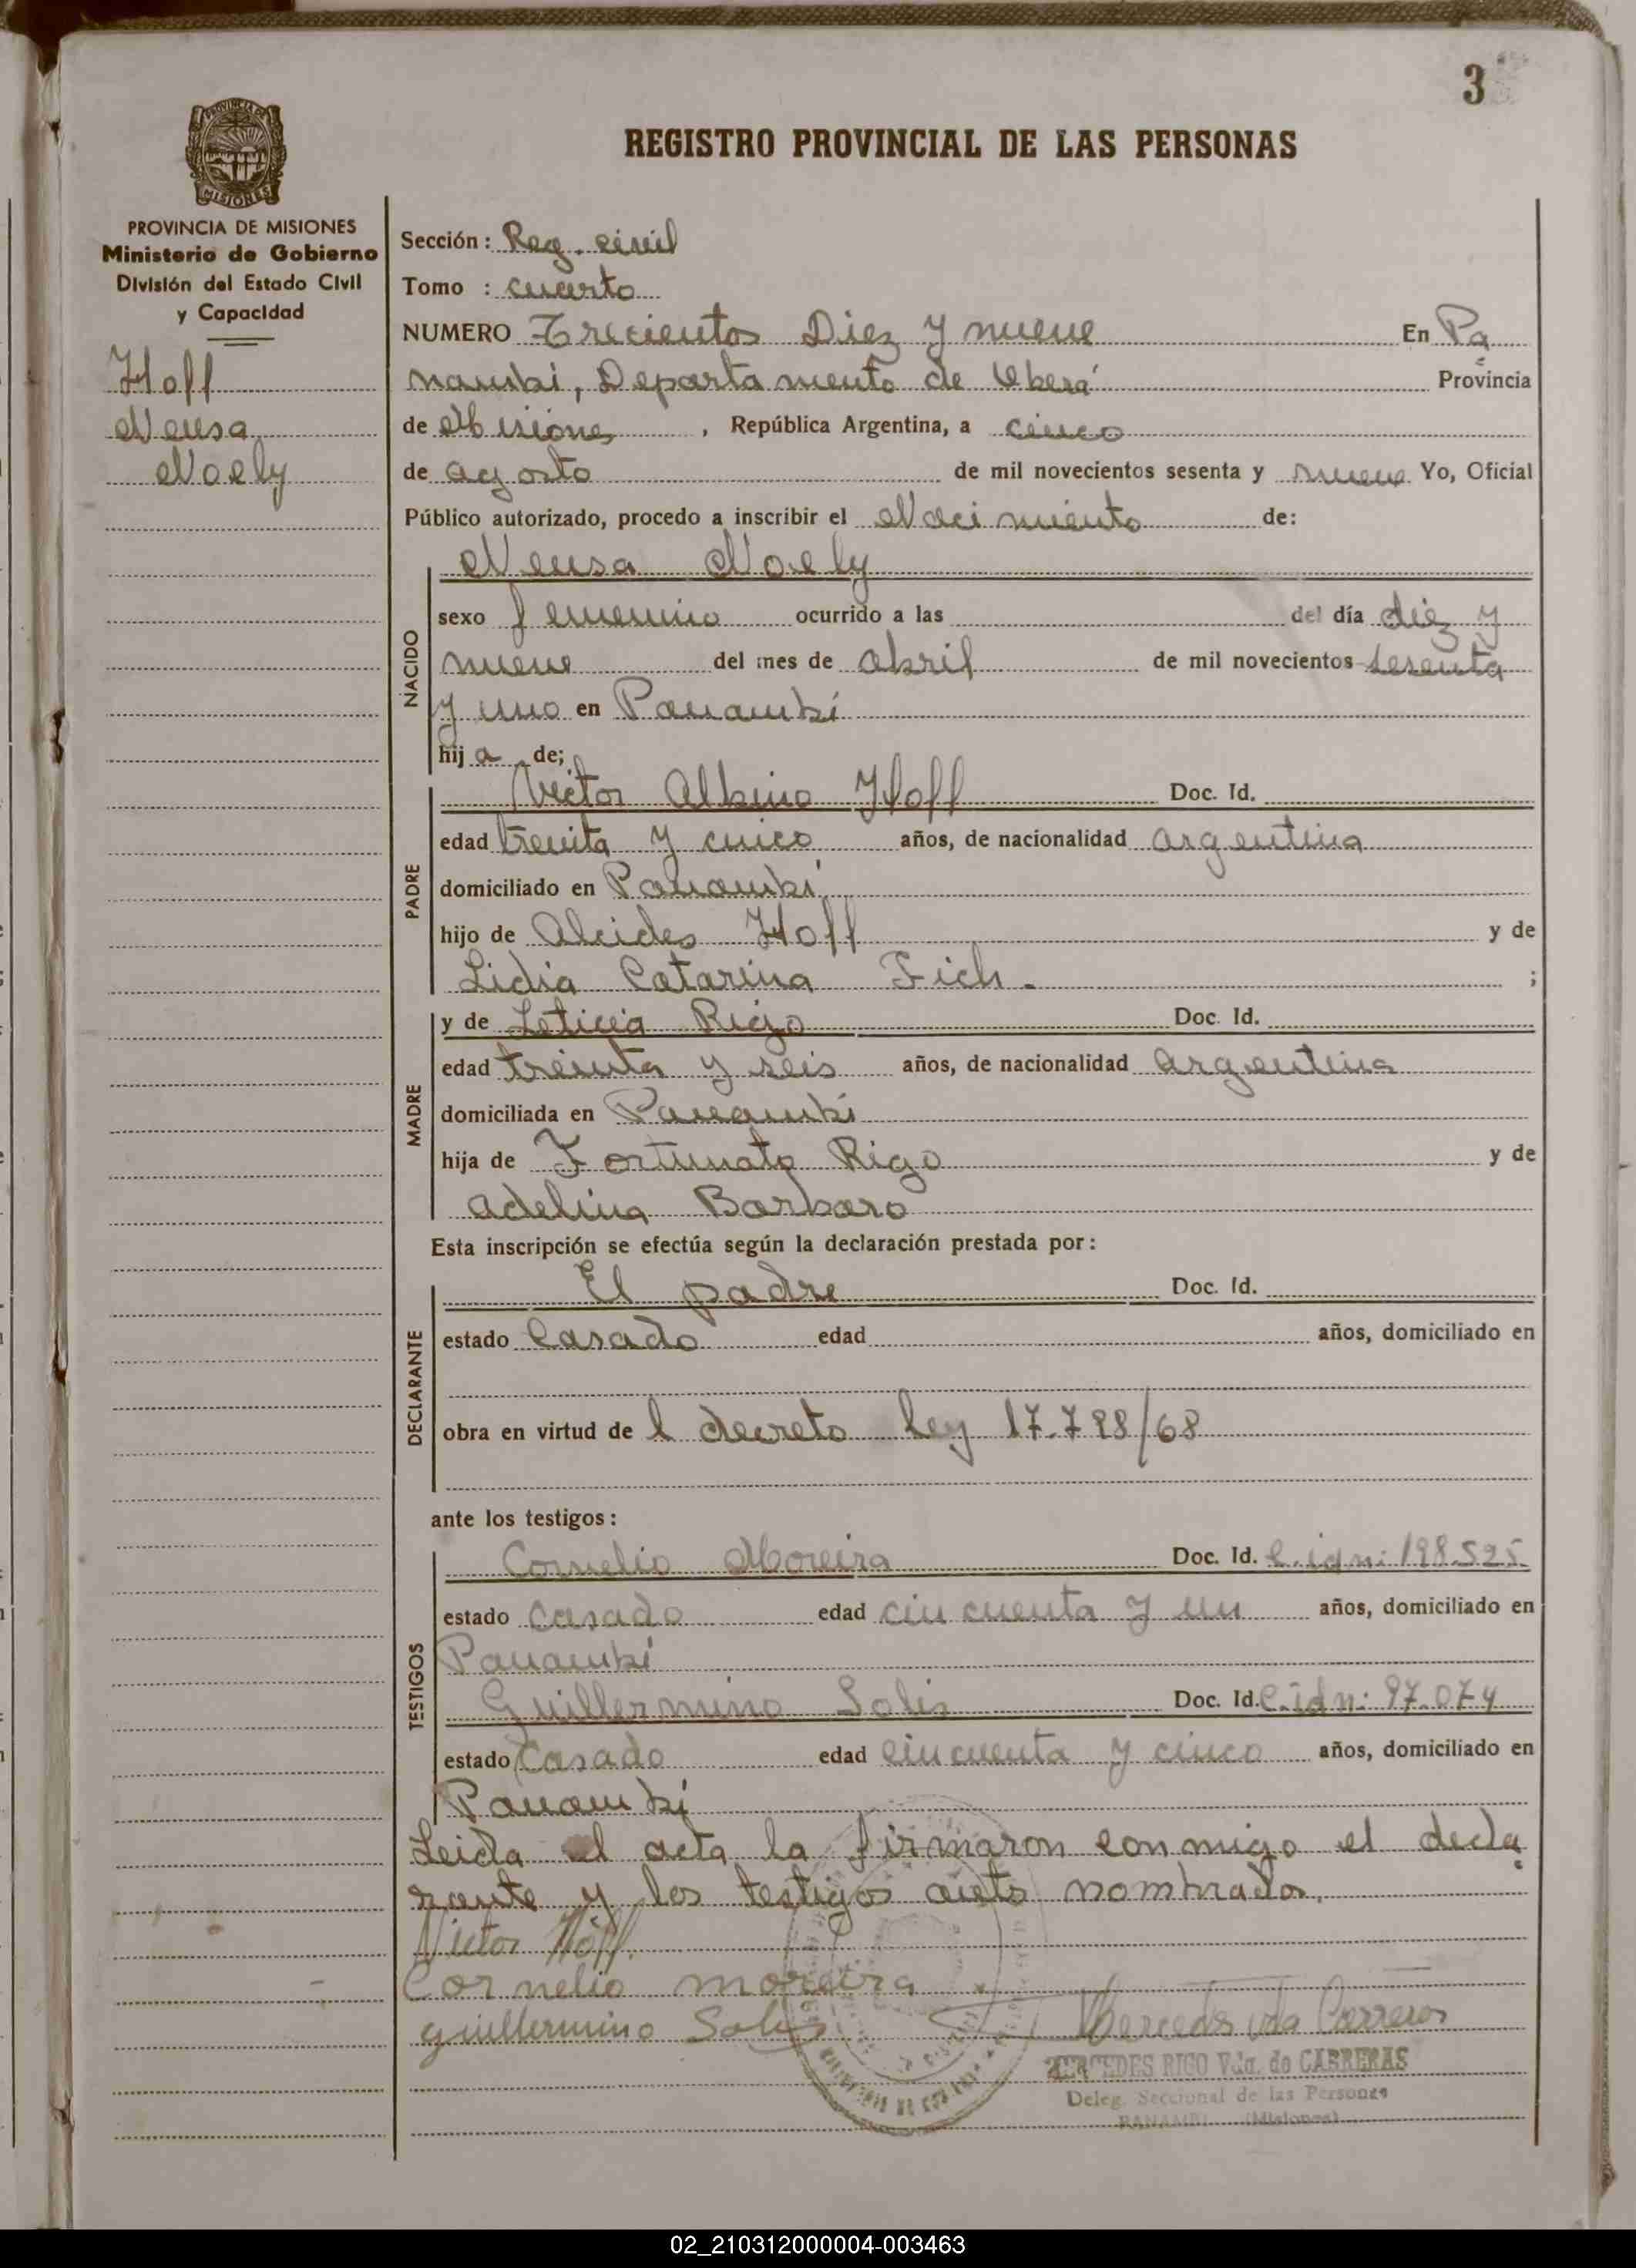 3
REGISTRO PROVINCIAL DE LAS PERSONAS
PROVINCIA DE MISIONES
MISIONES
PROVINCIA DE MISIONES
Ministerio de Gobierno
División del Estado Civil
y Capacidad
Hoff
Neusa
Noely
Sección: Reg. civil
Tomo : cuarto
NUMERO Trecientos Diez y nueve En Pa
nambi, Departamento de Oberá Provincia
de Misiones, República Argentina, a cinco
de agosto de mil novecientos sesenta y nueve Yo, Oficial
Público autorizado, procedo a inscribir el Nacimiento de:
Neusa Noely
NACIDO
sexo femenino ocurrido a las del día diez y
nueve del mes de abril de mil novecientos sesenta
y uno en Panambí
hij a de;
Victor Albino Hoff Doc. Id.
PADRE
edad treinta y cinco años, de nacionalidad argentina
domiciliado en Panambí
hijo de Alcides Hoff y de
Lidia Catarina Fich. ;
y de Leticia Rigo Doc. Id.
MADRE
edad treinta y seis años, de nacionalidad argentina
domiciliada en Panambí
hija de Fortunato Rigo y de
Adelina Barbaro
Esta inscripción se efectúa según la declaración prestada por:
El padre Doc. Id.
DECLARANTE
estado Casado edad años, domiciliado en
obra en virtud de l decreto ley 17.788/68
ante los testigos:
Cornelio Moreira Doc. Id. C. id n: 198.525
TESTIGOS
estado Casado edad cincuenta y un años, domiciliado en
Panambí
Guillermino Solis Doc. Id. C. id n: 97.074
estado Casado edad cincuenta y cinco años, domiciliado en
Panambí
Leida el acta la firmaron conmigo el decla
rante y los testigos nombrados.
Victor Hoff.
Cornelio moreira
guillermino Solis
Mercedes vda Carreras
MERCEDES RIGO Vda. de CABRERAS
Deleg. Seccional de las Personas
PANAMBI (Misiones)
02_210312000004-003463